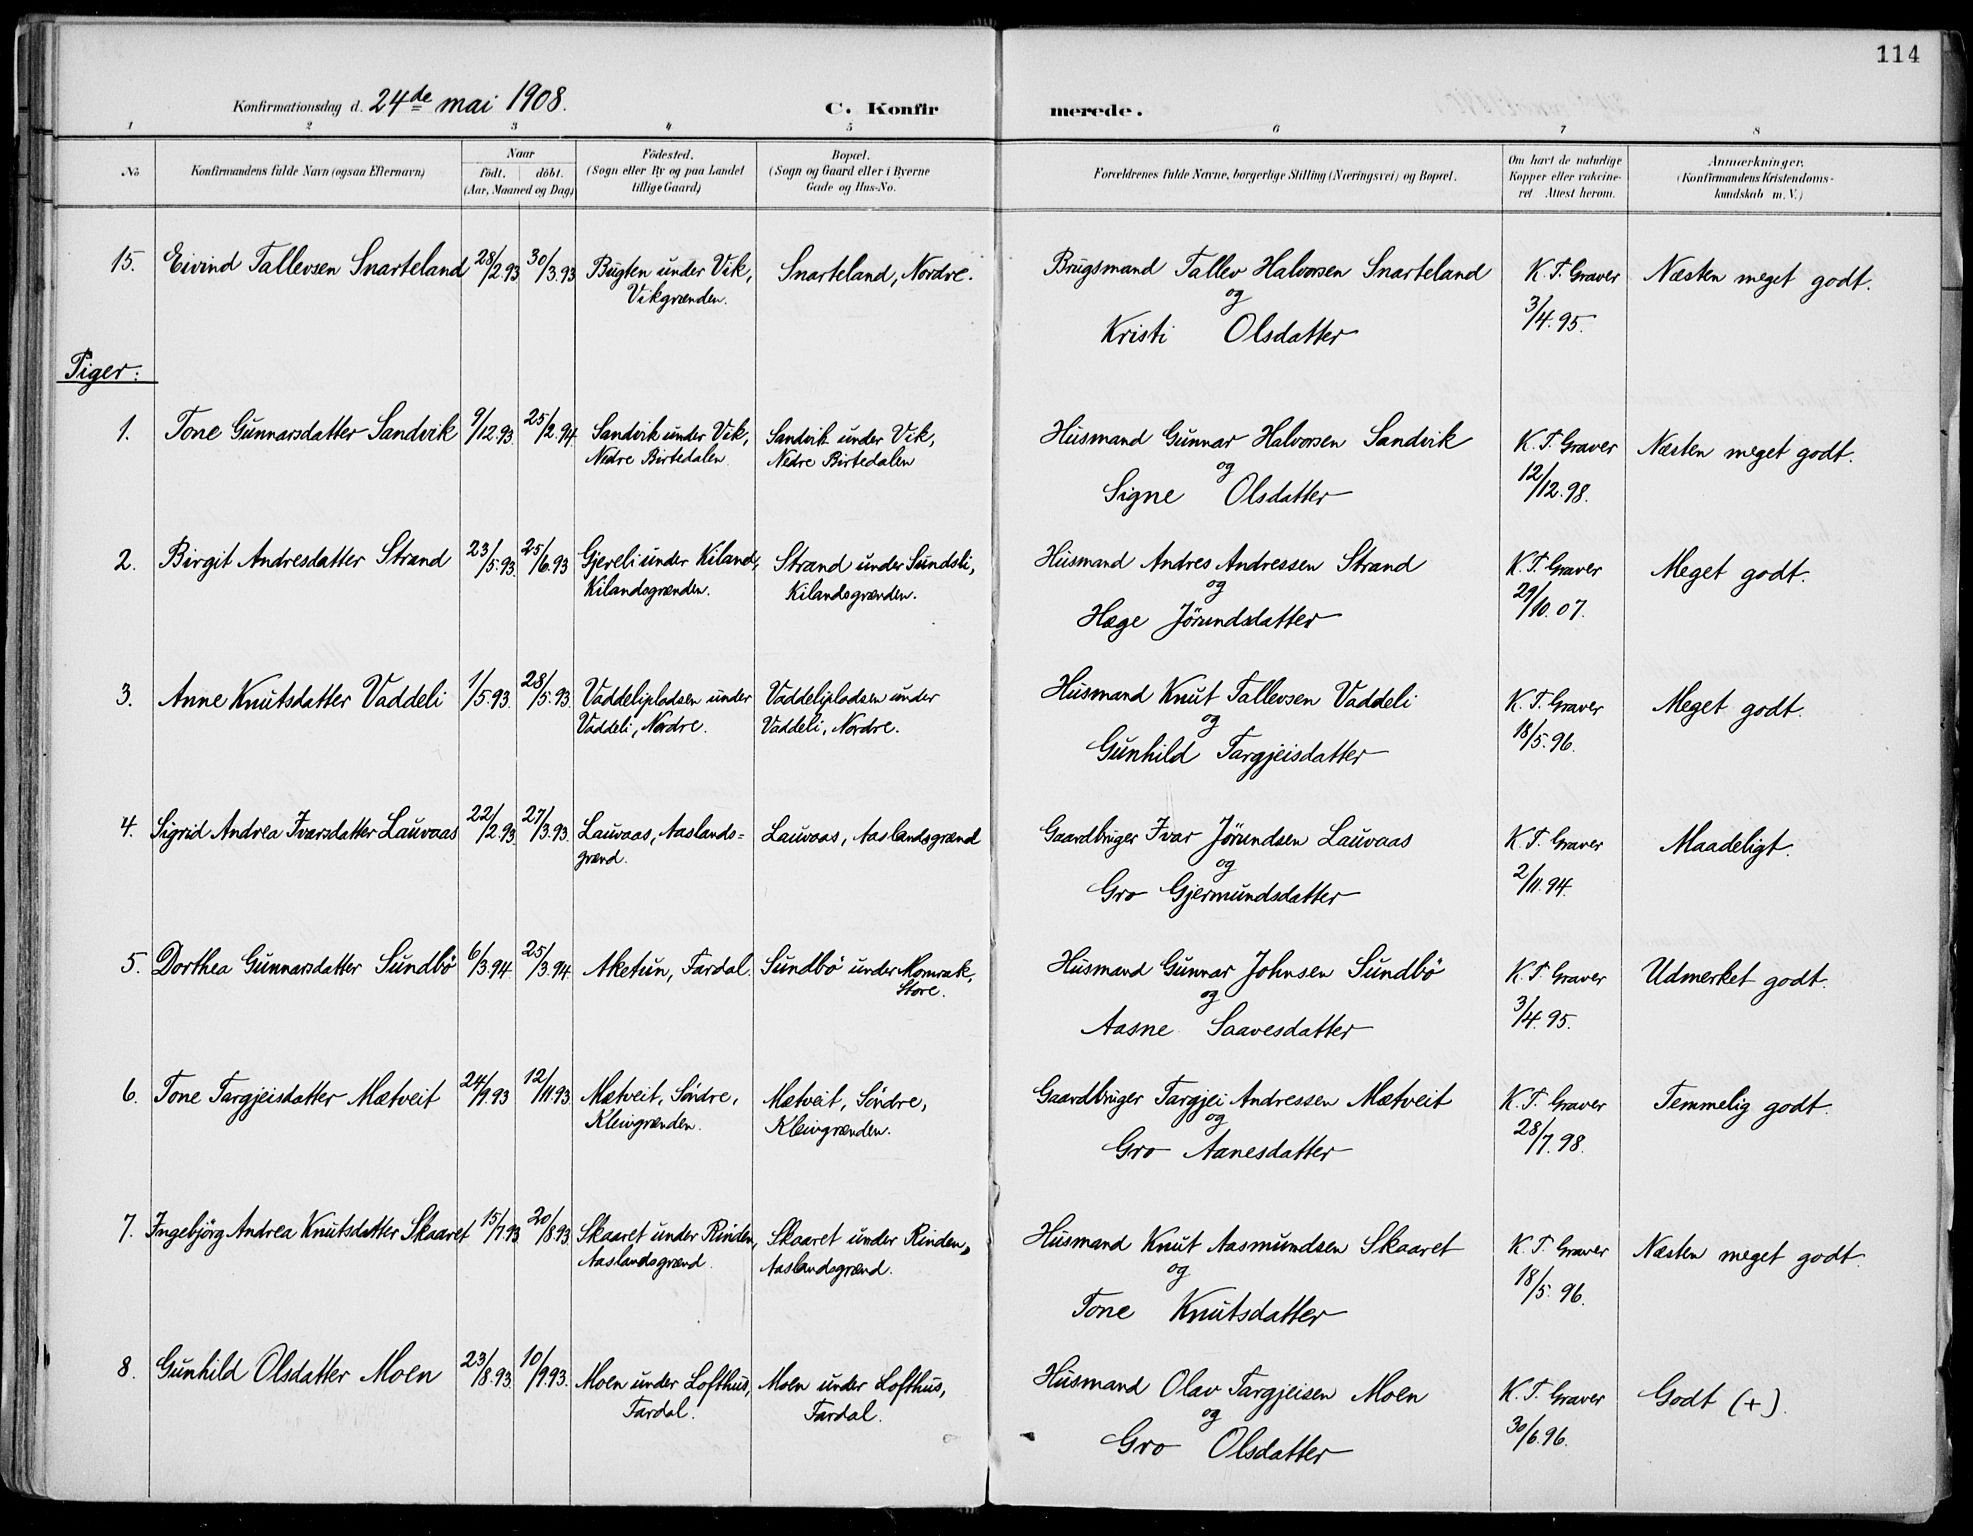 114
Konfirmationsdag d. 24de mai 1908.
C. Konfirmerede.
1 2 3 4 5 6 7 8
No
Konfirmandens fulde Navn (ogsaa Efternavn)
Naar
födt. döbt.
(Aar, Maaned og Dag)
Födested.
(Sogn eller By og paa Landet
tillige Gaard)
Bopæl.
(Sogn og Gaard eller i Byerne
Gade og Hus-No.
Forældrenes fulde Navne, borgerlige Stilling (Næringsvei) og Bopæl.
Om havt de naturlige
Kopper eller vakcine-
ret Attest herom.
Anmærkninger.
(Konfirmandens Kristendoms-
kundskab m. V.)
15. Eivind Tallevsen Snarteland 28/2.93 30/3.93 Bugten under Vik, Snarteland, Nordre. Brugsmand Tallev Halvorsen Snarteland K. T. Graver Næsten meget godt.
Vikgrænden. og 3/4.95.
Kristi Olsdatter
Piger:
1. Tone Gunnarsdatter Sandvik 9/12.93. 25/2.94. Sandvik under Vik, Sandvik under Vik, Husmand Gunnar Halvorsen Sandvik K. T. Graver Næsten meget godt.
Nedre Birtedalen. Nedre Birtedalen og 12/12.98.
Signe Olsdatter
2. Birgit Andresdatter Strand 23/5.93. 25/6.93 Gjereli under Kiland, Strand under Sundsli, Husmand Andres Andressen Strand K. T. Graver Meget godt.
Kilandsgrænden. Kilandsgrænden. og 29/10.07.
Hæge Jörundsdatter
3. Anne Knutsdatter Vaddeli 1/5.93. 28/5.93. Vaddelipladsen under Vaddelipladsen under Husmand Knut Tallevsen Vaddeli K. T. Graver Meget godt.
Vaddeli, Nordre. Vaddeli, Nordre. og 18/5.96.
Gunhild Targjeisdatter
4. Sigrid Andrea Ivarsdatter Lauvaas 22/2.93. 27/3.93. Lauvaas, Aaslands= Lauvaas, Aaslandsgrænd Gaardbruger Ivar Jörundsen Lauvaas K. T. Graver Maadeligt.
grænd. og 2/11.94.
Gro Gjermundsdatter
5. Dorthea Gunnarsdatter Sundbö 6/3.94. 25/3.94. Aketun, Fardal. Sundbö under Momrak, Husmand Gunnar Johnsen Sundbö K. T. Graver Udmerket godt.
Store. og 3/4.95.
Aasne Saavesdatter
6. Tone Targjeisdatter Mætveit 24/9.93 12/11.93. Mætveit, Söndre, Mætveit, Söndre, Gaardbruger Targjei Andressen Mætveit K. T. Graver Temmelig godt.
Kleivgrænden. Kleivgrænden. og 28/7.98.
Gro Aanesdatter
7. Ingebjörg Andrea Knutsdatter Skaaret 15/7.93 20/8.93. Skaaret under Rinden, Skaaret under Rinden, Husmand Knut Aasmundsen Skaaret K. T. Graver Næsten meget godt.
Aaslandsgrænd. Aaslandsgrænd. og 18/5.96.
Tone Knutsdatter
8. Gunhild Olsdatter Moen 23/8.93. 10/9.93. Moen under Lofthus, Moen under Lofthus, Husmand Olav Targjeisen Moen K. T. Graver Godt (+).
Fardal. Fardal. og 30/6.96.
Gro Olsdatter